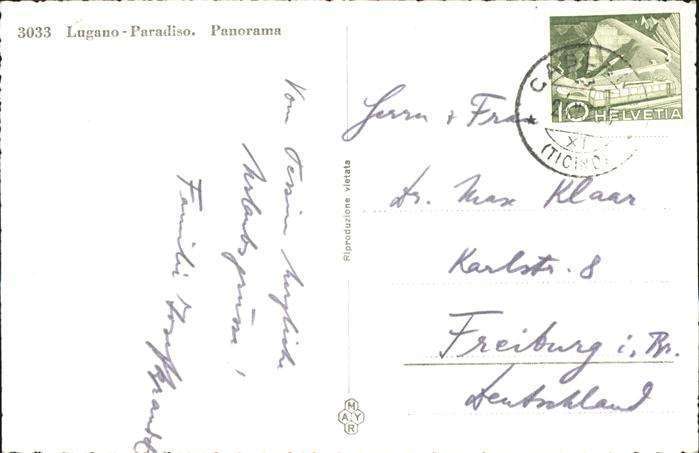 3033 Lugano-Paradiso. Panorama
Vom Tessin herzliche
Urlaubsgrüsse,
Familie Josef Brandt
Riproduzione vietata
MAYR
10 HELVETIA
(TICINO)
Herrn + Frau
Dr. Max Klaar
Karlstr. 8
Freiburg i. Br.
Deutschland